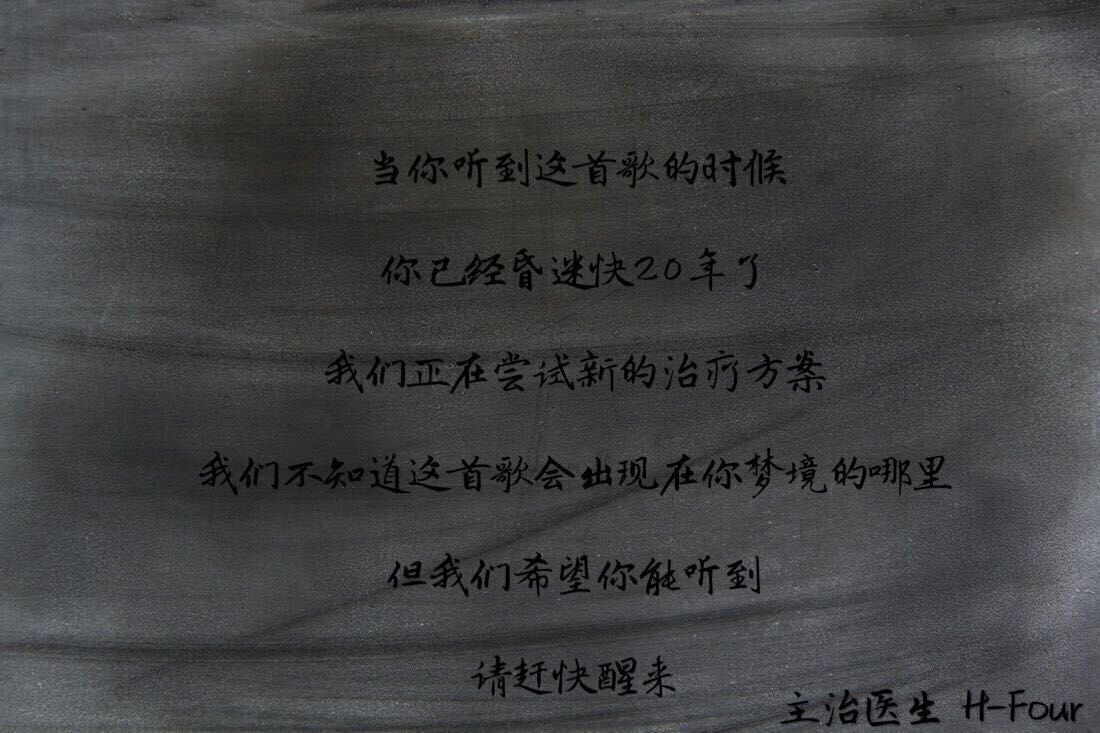 当你听到这首歌的时候
你已经昏迷快20年了
我们正在尝试新的治疗方案
我们不知道这首歌会出现在你梦境的哪里
但我们希望你能听到
请赶快醒来
主治医生 H-Four